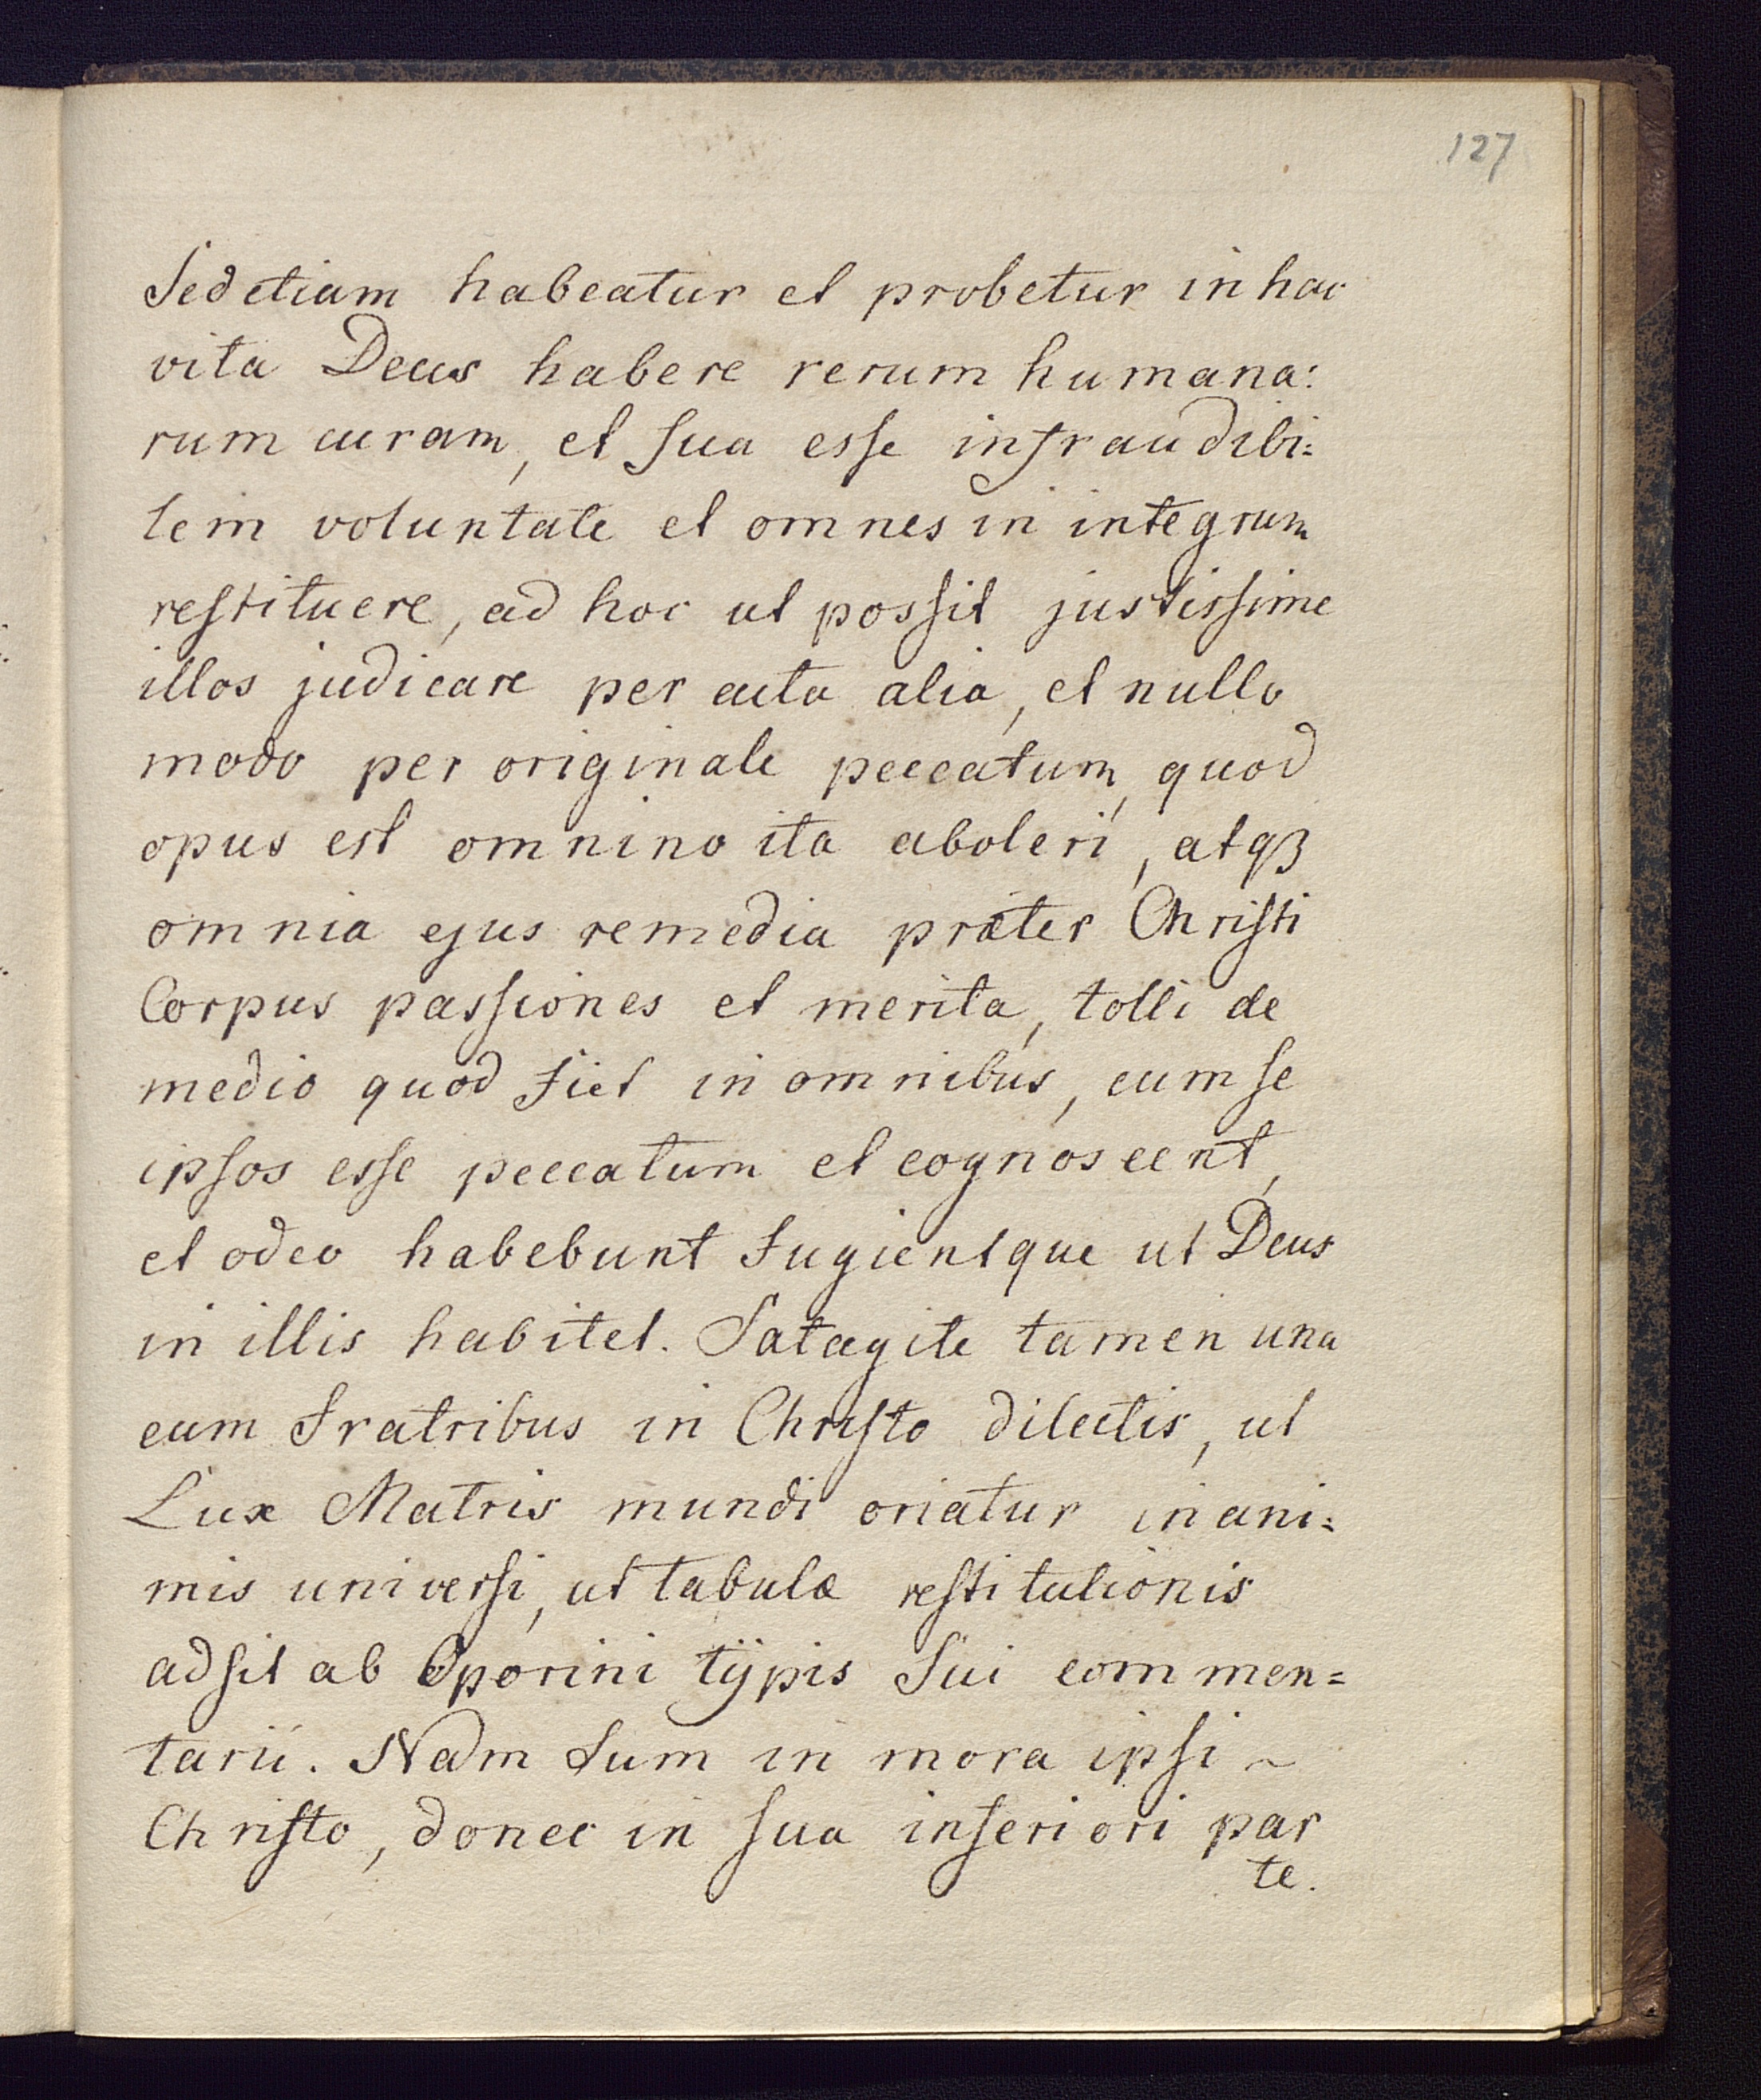 127
Sed etiam habeatur et probetur in hac
vita Deus habere rerum humana:
rum curam, et sua esse infraudibi=
lem voluntate et omnes in integrum
restituere, ad hoc ut possit justissime
illos judicare per acta alia, et nullo
modo per originale peccatum, quod
opus est omnino ita aboleri, atqꝫ
omnia ejus remedia præter Christi
Corpus passiones et merita, tolli de
medio quod fiet in omnibus, cum se
ipsos esse peccatum et cognoscent,
et odeo habebunt fugientque ut Deus
in illis habitet. Satagite tamen una
cum fratribus in Christo dilectis, ut
Lux Matris mundi oriatur in ani=
mis universi, ut tabulæ restitutionis
adsit ab Oporini tÿpis Sui commen=
tarii. Nam sum in mora ipsi ~
Christo, donec in sua inferiori par
te.